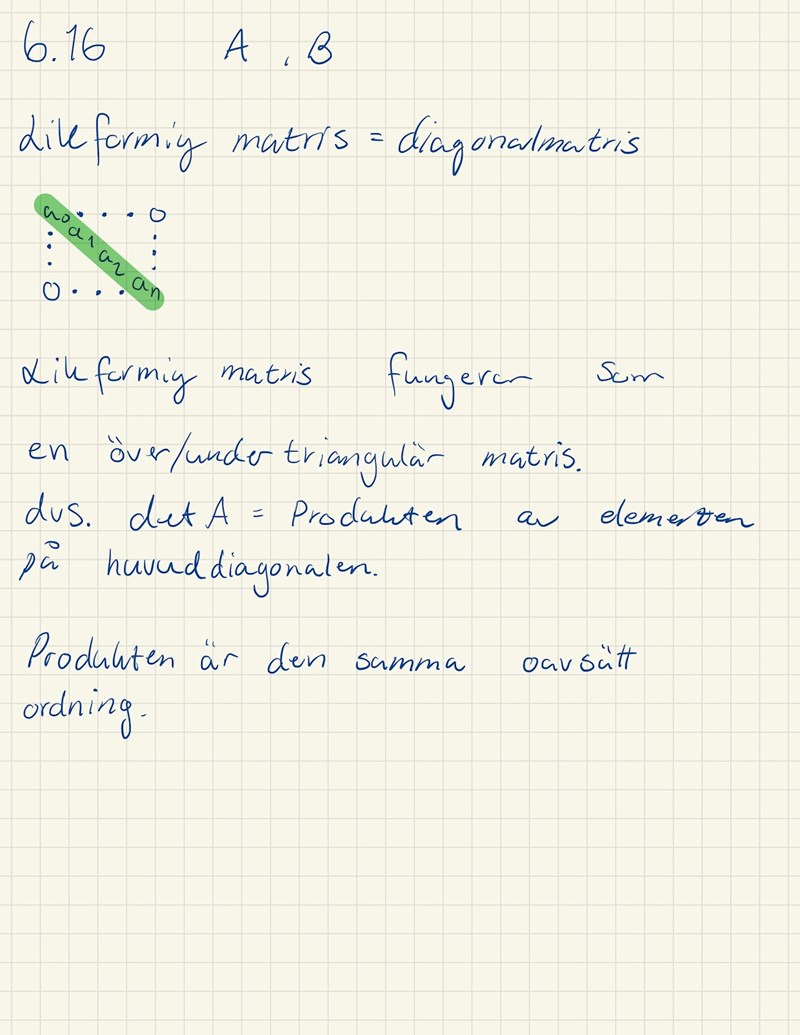 6.16 A , B
Likformig matris = diagonalmatris
a0 . . . 0
a1
a2
0 . . . an
Likformig matris fungerar som
en över/under triangulär matris.
dvs. det A = Produkten av elementen
på huvuddiagonalen.
Produkten är den samma oavsätt
ordning.